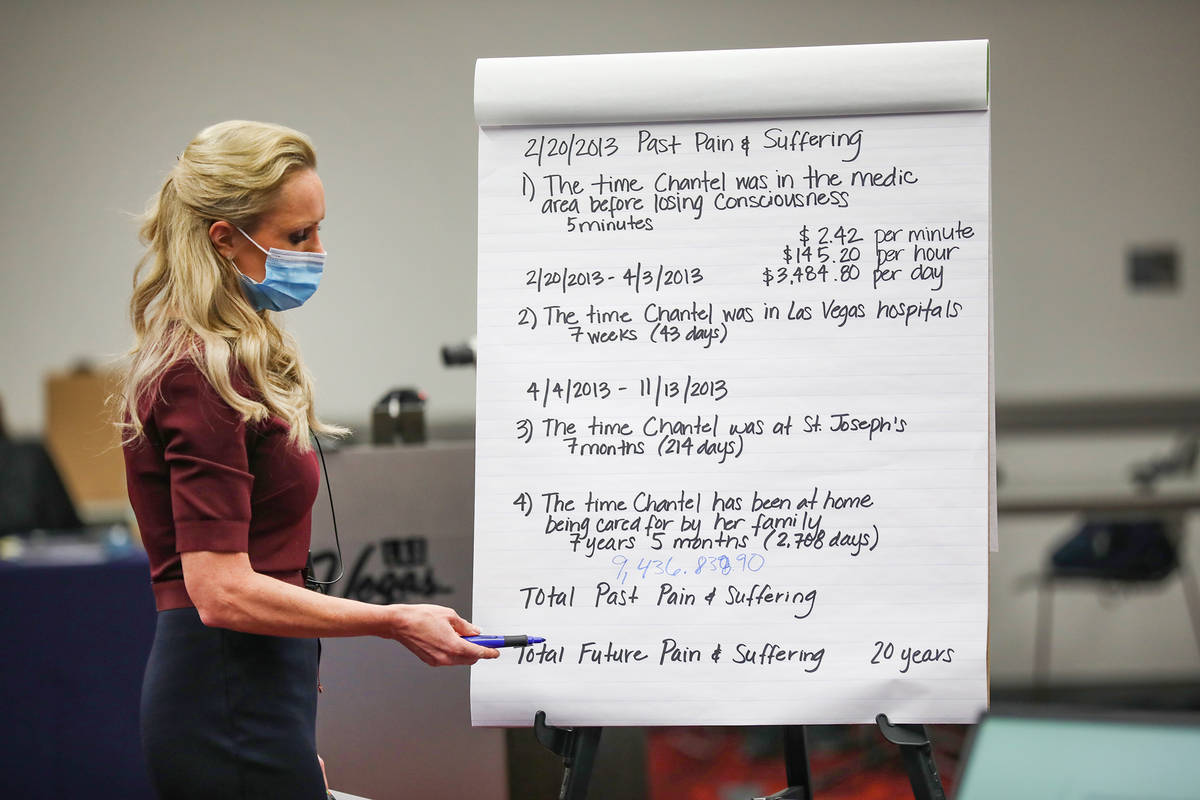 2/20/2013 Past Pain & Suffering
1) The time Chantel was in the medic
area before losing Consciousness
5 minutes
$ 2.42 per minute
$145.20 per hour
2/20/2013 - 4/3/2013 $3,484.80 per day
2) The time Chantel was in Las Vegas hospitals
7 weeks (43 days)
4/4/2013 - 11/13/2013
3) The time Chantel was at St. Joseph's
7 months (214 days)
4) The time Chantel has been at home
being cared for by her family
7 years 5 months (2,708 days)
9,436.838.90
Total Past Pain & Suffering
Total Future Pain & Suffering 20 years
Vegas